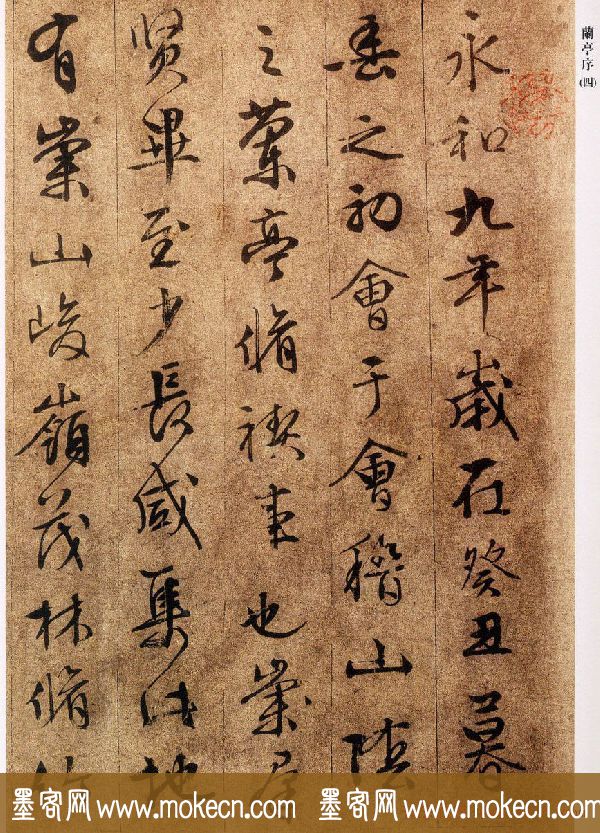 蘭亭序(四)
永和九年歲在癸丑暮
春之初會于會稽山陰
之蘭亭脩禊事也羣
賢畢至少長咸集此地
有崇山峻嶺茂林脩竹
墨客网 www.mokecn.com 墨客网 www.mokecn.com